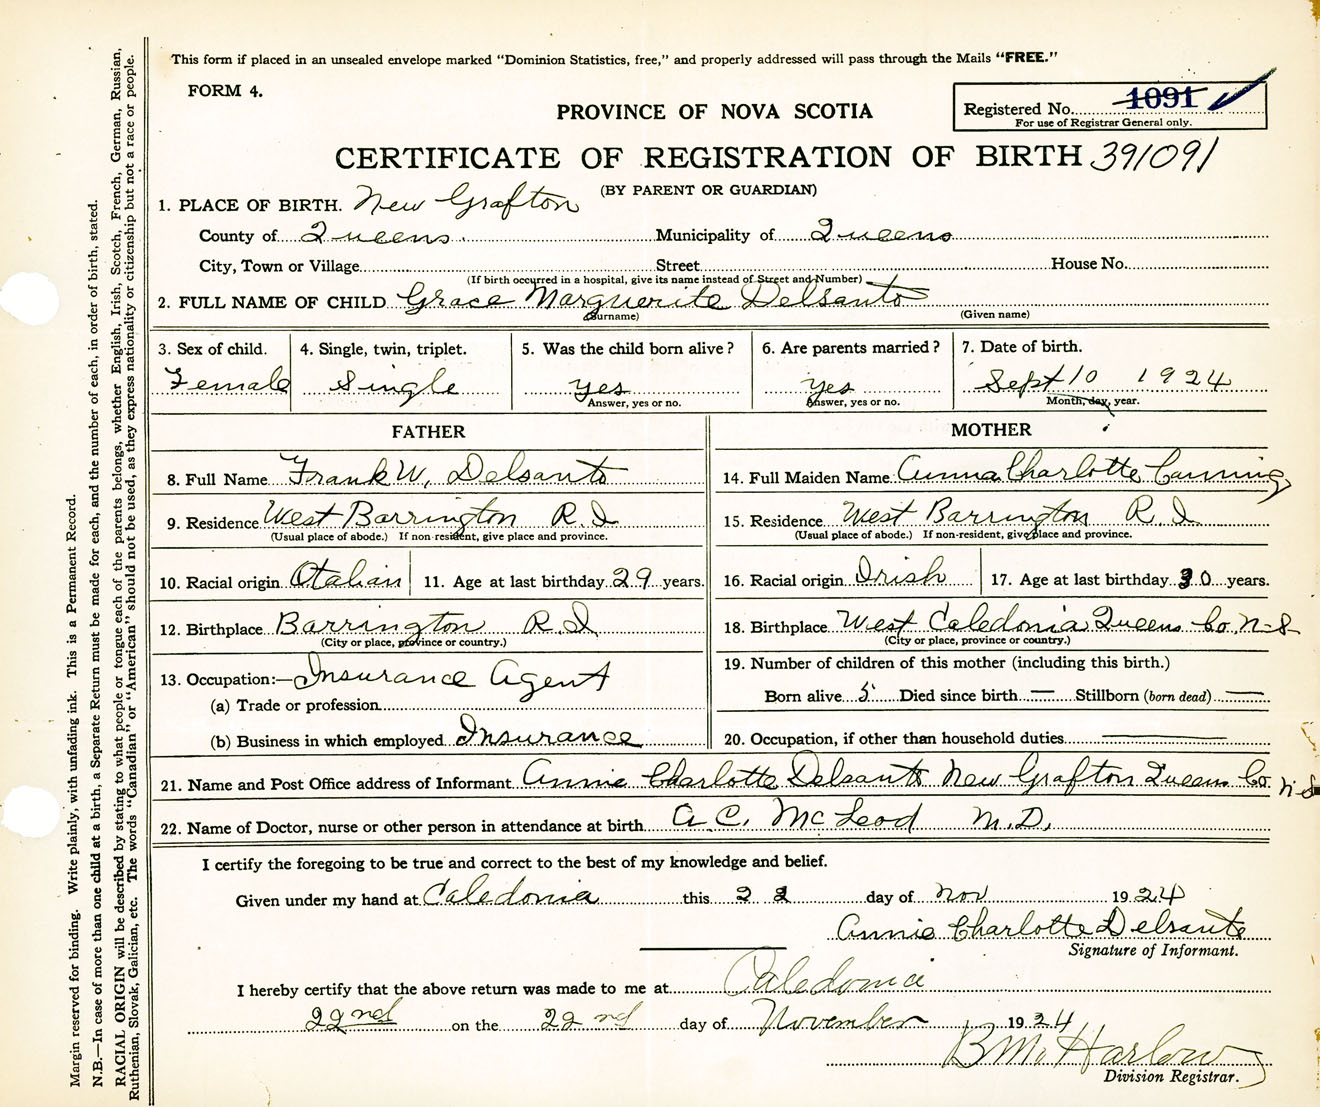 This form if placed in an unsealed envelope marked "Dominion Statistics, free," and properly addressed will pass through the Mails "FREE."
FORM 4.
PROVINCE OF NOVA SCOTIA
Registered No. 1091
For use of Registrar General only.
CERTIFICATE OF REGISTRATION OF BIRTH 391091
(BY PARENT OR GUARDIAN)
1. PLACE OF BIRTH. New Grafton
County of Queens Municipality of Queens
City, Town or Village Street House No.
(If birth occurred in a hospital, give its name instead of Street and Number)
2. FULL NAME OF CHILD Grace Marguerite Delsanto
(Surname) (Given name)
3. Sex of child. 4. Single, twin, triplet. 5. Was the child born alive? 6. Are parents married? 7. Date of birth.
Female Single yes yes Sept 10 1924
Answer, yes or no. Answer, yes or no. Month, day, year.
FATHER
8. Full Name Frank W. Delsanto
9. Residence West Barrington R.I
(Usual place of abode.) If non-resident, give place and province.
10. Racial origin Italian 11. Age at last birthday 29 years.
12. Birthplace Barrington R.I
(City or place, province or country.)
13. Occupation:— Insurance Agent
(a) Trade or profession
(b) Business in which employed Insurance
MOTHER
14. Full Maiden Name Anna Charlotte Canning
15. Residence West Barrington R.I
(Usual place of abode.) If non-resident, give place and province.
16. Racial origin Irish 17. Age at last birthday 30 years.
18. Birthplace West Caledonia Queens Co. N-S
(City or place, province or country.)
19. Number of children of this mother (including this birth.)
Born alive 5 Died since birth — Stillborn (born dead) —
20. Occupation, if other than household duties —
21. Name and Post Office address of Informant Annie Charlotte Delsanto New Grafton Queens Co. N-S
22. Name of Doctor, nurse or other person in attendance at birth A. C. McLeod M.D.
I certify the foregoing to be true and correct to the best of my knowledge and belief.
Given under my hand at Caledonia this 22 day of Nov 1924
Annie Charlotte Delsanto
Signature of Informant.
I hereby certify that the above return was made to me at Caledonia
22nd on the 22nd day of November 1924
B Mc Harlow
Division Registrar.
Margin reserved for binding. Write plainly, with unfading ink. This is a Permanent Record.
N.B.—In case of more than one child at a birth, a Separate Return must be made for each, and the number of each, in order of birth, stated.
RACIAL ORIGIN will be described by stating to what people or tongue each of the parents belongs, whether English, Irish, Scotch, French, German, Russian,
Ruthenian, Slovak, Galician, etc. The words "Canadian" or "American" should not be used, as they express nationality or citizenship but not a race or people.